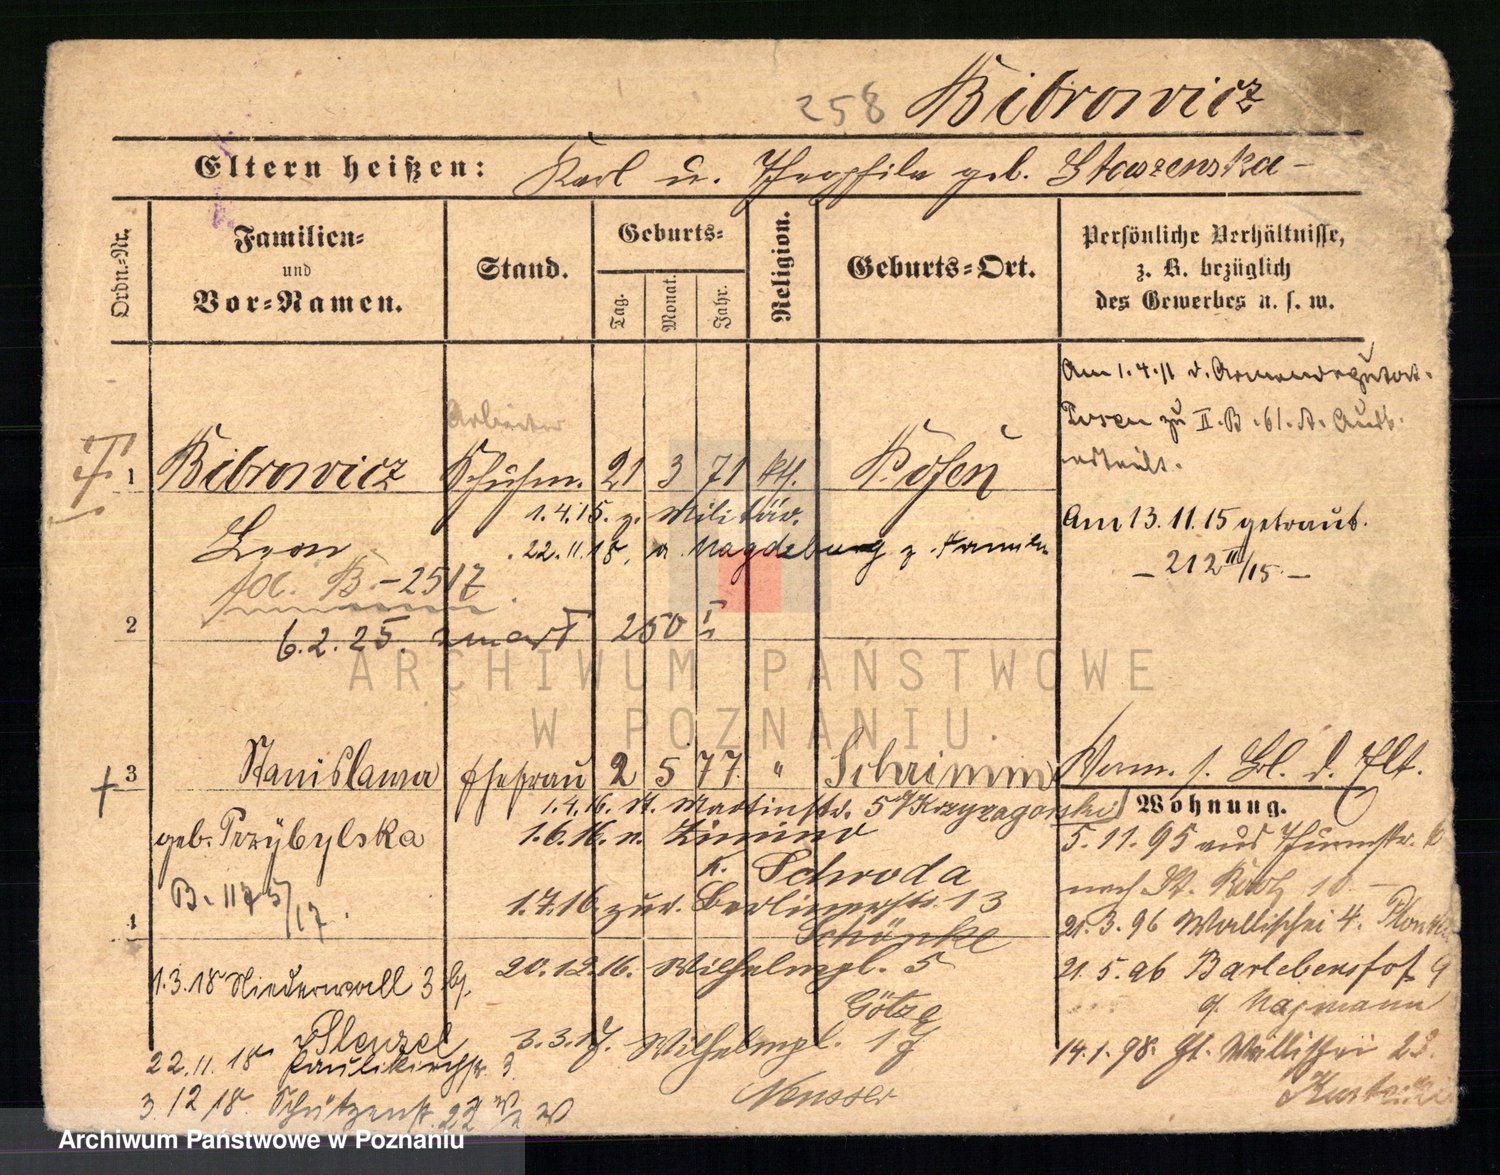 258 Bibrowicz
Eltern heißen: Karl u. Theophila geb. Staszenska
Ordn.-Nr.
Familien-
und
Vor-Namen.
Stand.
Geburts-
Tag.
Monat.
Jahr.
Religion.
Geburts-Ort.
Persönliche Verhältnisse,
z. B. bezüglich
des Gewerbes u. s. w.
Am 1.4.11 d.
Posen zu II. B. 61. A.
erteilt.
Am 13.11.15 getraut.
212 III/15.
Arbeiter
1 Bibrowicz Schuhm. 21 3 71 kth. Posen
Leon
1.4.15. z. Militär.
22.11.18. v. Magdeburg z. Familie
B.-2517
2
6.2.25. zmarł 250 I
ARCHIWUM PAŃSTWOWE
W POZNANIU
3 Stanislawa Ehefrau 2 5 77. " Schrimm
geb. Przybylska
B. 1175/17.
Verm. s. Bl. d. Elt.
1.4.16. St. Martinstr. 57 Krzyzagorski
1.6.16. n. Zimino
K. Schroda
1.7.16. zur. Berlinerstr. 13
Schönke
20.12.16. Wilhelmpl. 5
Götze
3.3.17. Wilhelmpl. 17
Neusser
4
1.3.18 Niederwall 3
Stenzel
22.11.18 Paulikirchstr. 3.
3 12 18. Schützenstr. 22
Wohnung.
5.11.95 aus Thurmstr.
nach St. 10
21.3.96 Wallischei 4.
21.5.96 Barlebenshof 9
14.1.98. Wallischei 23.
Archiwum Państwowe w Poznaniu